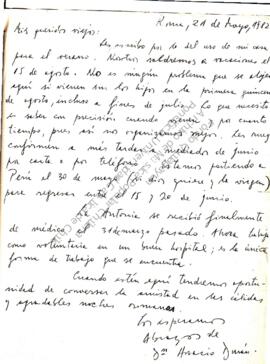 Roma, 21 de Mayo, 1982
Mis queridos viejos:
Les escribo por lo del uso de mi casa
para el verano. Nosotros saldremos a vacaciones el
15 de agosto. No es ningún problema que se alojen
aquí si vienen sin los hijos en la primera quincena
de agosto, incluso a fines de julio. Lo que necesito
es saber con precisión cuando vienen y por cuanto
tiempo, pues así nos organizamos mejor. Les ruego
confirmen a más tardar a mediados de junio
por carta o por teléfono. Estamos partiendo a
Perú el 30 de mayo (si dios quiere y la virgen)
para regresar entre el 15 y 20 de junio.
Antonia se recibió finalmente
de médico el 30 marzo pasado. Ahora trabaja
como voluntaria en un buen hospital; es la única
forma de trabajo que se encuentra.
Cuando estén aquí tendremos oportu-
nidad de conversar la amistad en las cálidas
y agradables noches romanas.
Los esperamos
Abrazos de
Horacio Durán